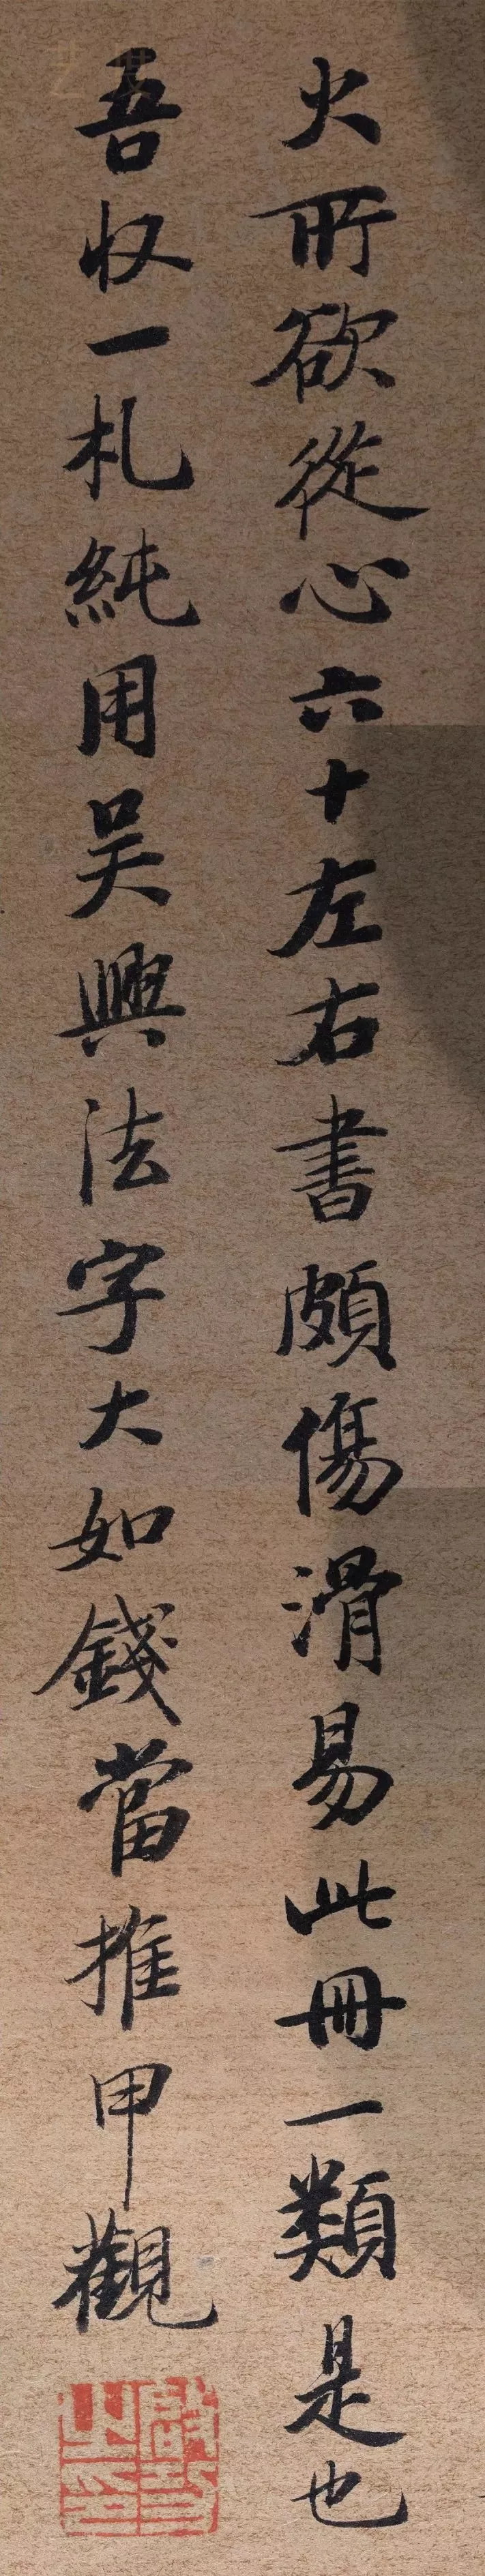 火所欲從心六十左右書頗傷滑易此冊一類是也
吾收一札純用吳興法字大如錢當推甲觀